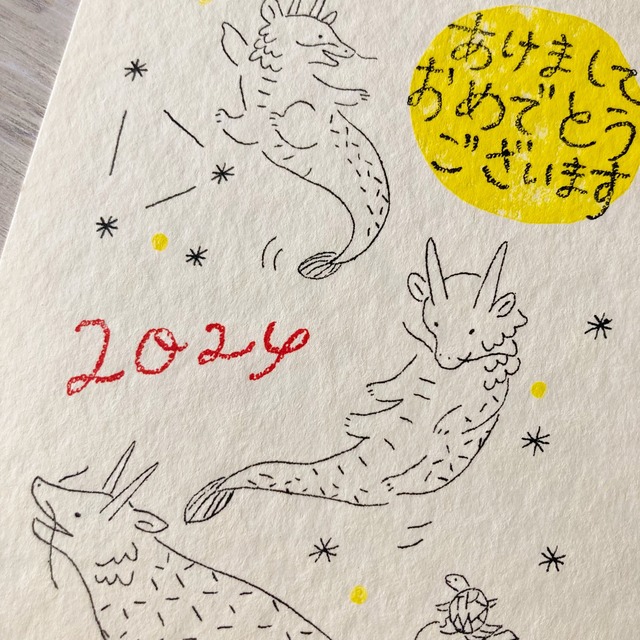 あけまして
おめでとう
ございます
2024